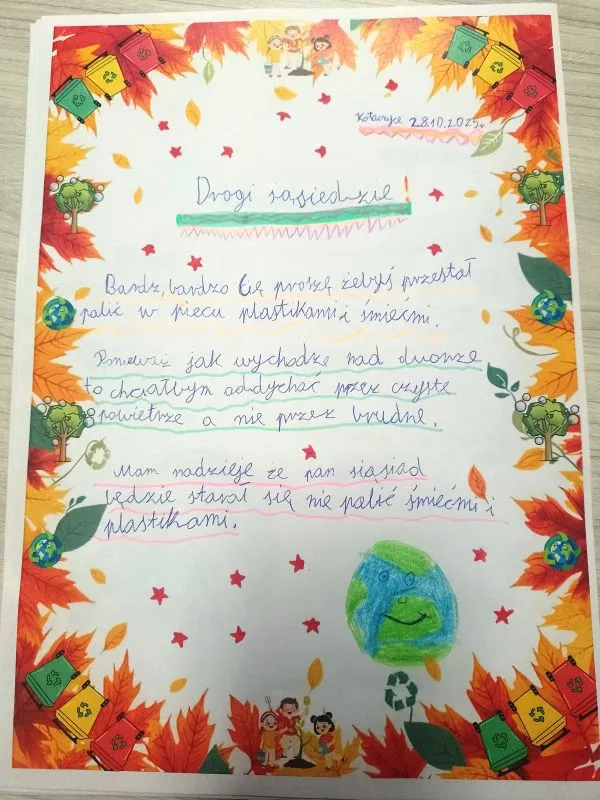 Kołaczyce 28.10.2025r.
Drogi sąsiedzie!
Bardz, bardzo Cię proszę żebyś przestał
palić w piecu plastikami i śmiećmi.
Ponieważ jak wychodzę nad dworze
to chciałbym oddychać przez czyste
powietrze a nie przez brudne.
Mam nadzieję że pan siąsiad
będzie starał się nie palić śmiećmi i
plastikami.